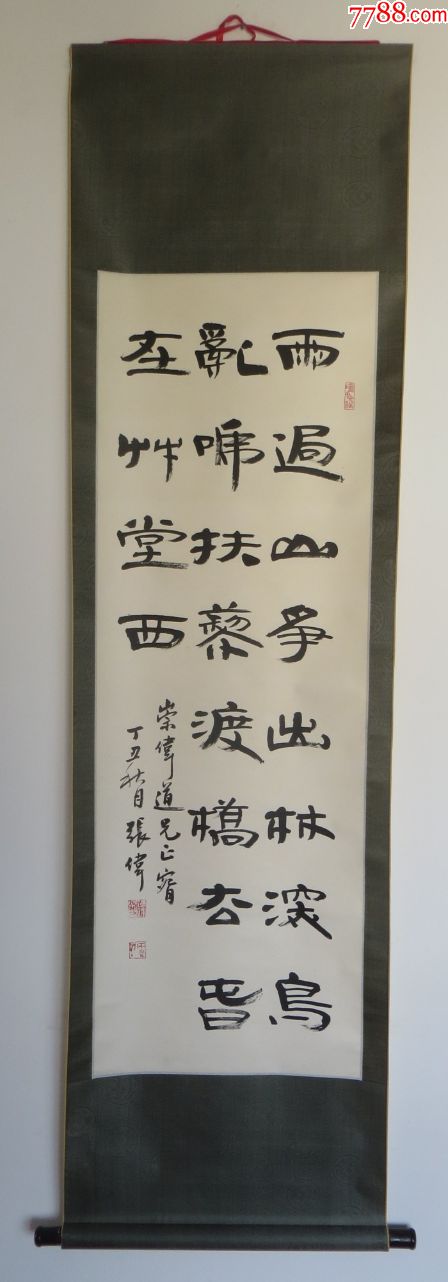 7788.com
雨過山爭出林深鳥
亂啼扶藜渡橋去春
在艸堂西
崇偉道兄正
丁丑秋月張偉